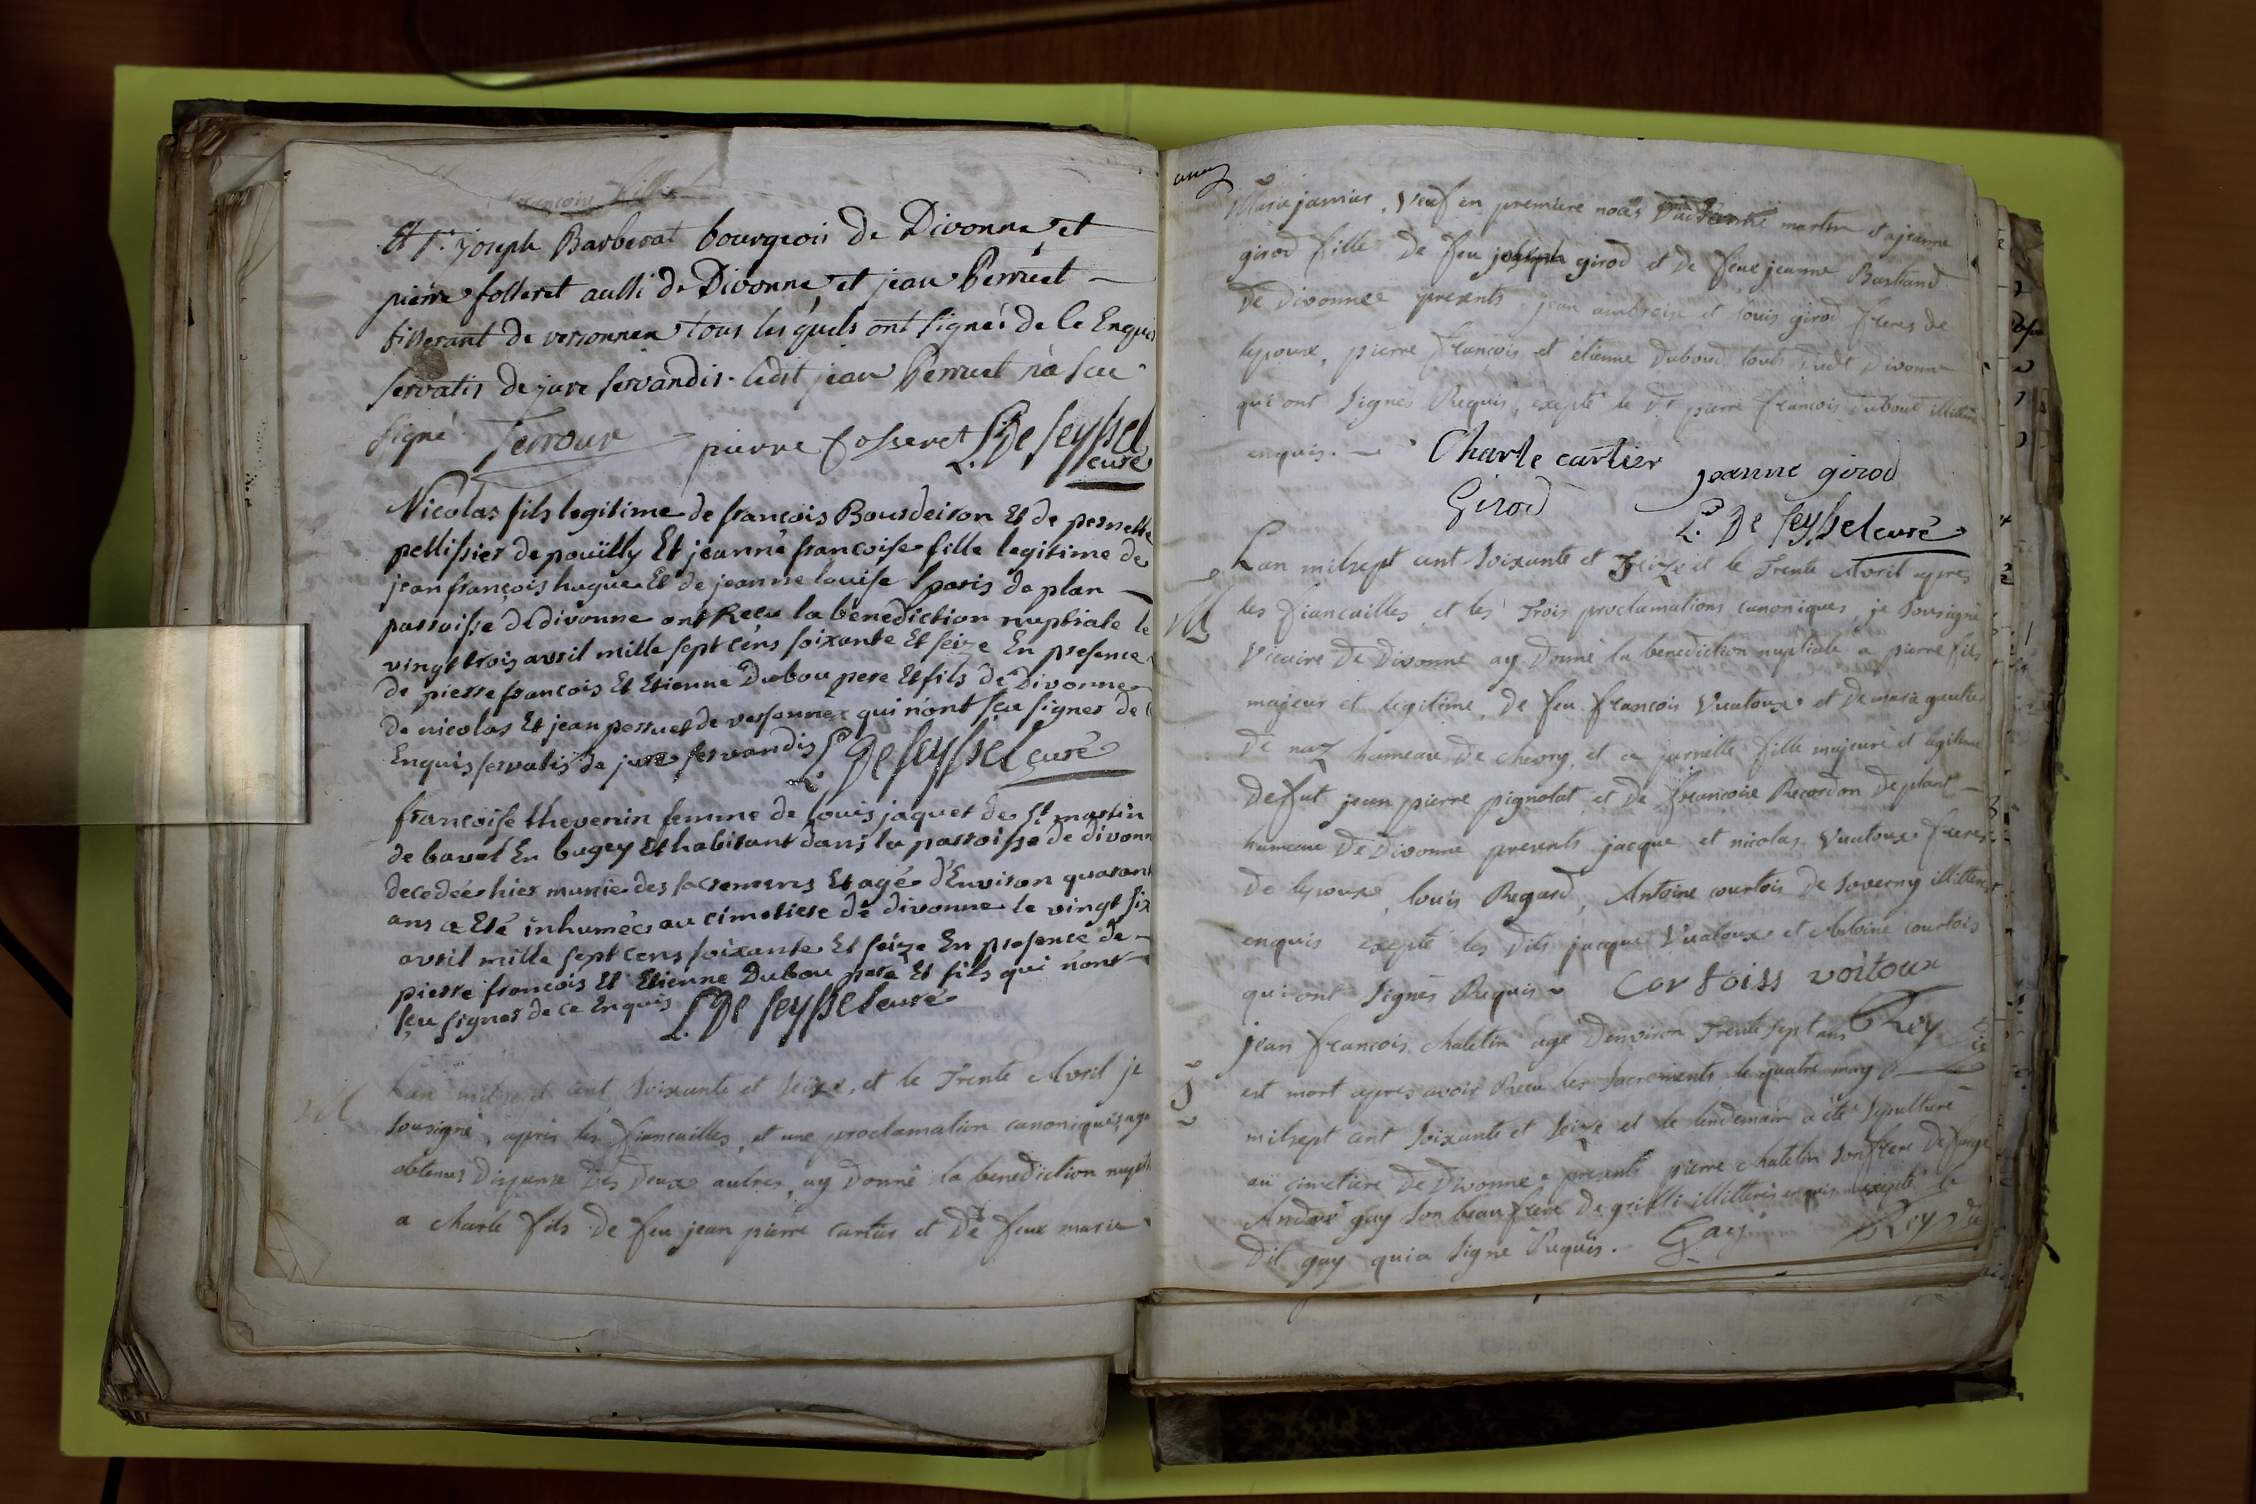 Et Sr. joseph Barberat bourgeois de Divonne et
pierre folleret aussi de Divonne et jean Perruet
tisserant de versonnex tous les quels ont signés de ce Enquis
servatis de jure servandis. ledit jean Perruet n'a sceu
signé Terroux pierre fosseret L. De Seyssel
curé
Nicolas fils legitime de françois Bourdeiron Et de pernette
pellissier de pouilly Et jeanne françoise fille legitime de
jean françois hugue Et de jeanne louise paris de plan
parroisse de divonne ont Recu la benediction nuptiale le
vingt trois avril mille sept cens soixante Et seize En presence
de pierre francois Et Etienne Dubou pere Et fils de Divonne
de nicolas Et jean perruet de versonnex qui n'ont sçu signer de
Enquis servatis de jure servandis L. De Seyssel curé
françoise thevenin femme de louis jaquet de St. martin
de bavel En bugey Et habitant dans la parroisse de divonn
decedée hier munie des sacremens Et agé d'Environ quarant
ans a Eté inhumée au cimetiere de divonne le vingt six
avril mille sept cens soixante Et seize En presence de
pierre francois Et Etienne Dubou pere Et fils qui n'ont
sçu signer de ce Enquis L. De Seyssel curé
L'an mil sept cent soixante et seize, et le Trente Avril je
sousigné, apres les fiancailles, et une proclamation canonique, aya
obtenus dispense des deux autres, ay donné la benediction nupti
a charle fils de feu jean pierre cartier et de feue marie
Marie jamier, veuf en premiere noces martin et a jeanne
girod fille de feu joseph girod et de feue jeanne Bastiand
de Divonne presents jean ambroise et louis girod freres de
lepouse, pierre françois et etienne Duboud touts dudt Divonne
qui ont signés Requis, exepté le dt pierre françois Duboud illitéré
enquis. Charle cartier jeanne girod
Girod L. De Seyssel curé
L'an mil sept cent soixante et seize et le Trente Avril apres
les fiancailles et les Trois proclamations canoniques, je sousigné
M
vicaire de Divonne ay donné la benediction nuptiale a pierre fils
majeur et legitime de feu françois Vuatoux et de maria gautier
de naz hameau de chevry, et a pernette fille majeure et legitime
defut jean pierre pignolat et de francoise Recordon de plant
hameau de Divonne presents jacque et nicolas Vuatoux freres
de lepoux, louis Regard, Antoine courtois de Soverny illitterés
enquis exepté les dits jacque Vuatoux et Antoine courtois
qui ont signés Requis Cortoiss voitoux
Rey
jean francois chatelin agé denviron Trente sept ans
est mort apres avoir Recu les sacrements le quatre may
S
mil sept cent soixante et seize et le lendemain a été sepulturé
au cimetiere de Divonne presents pierre chatelin son frere
André guy son beau frere de grilli illitterés enquis exepté le
dit guy qui a signé Requis. Gay Rey